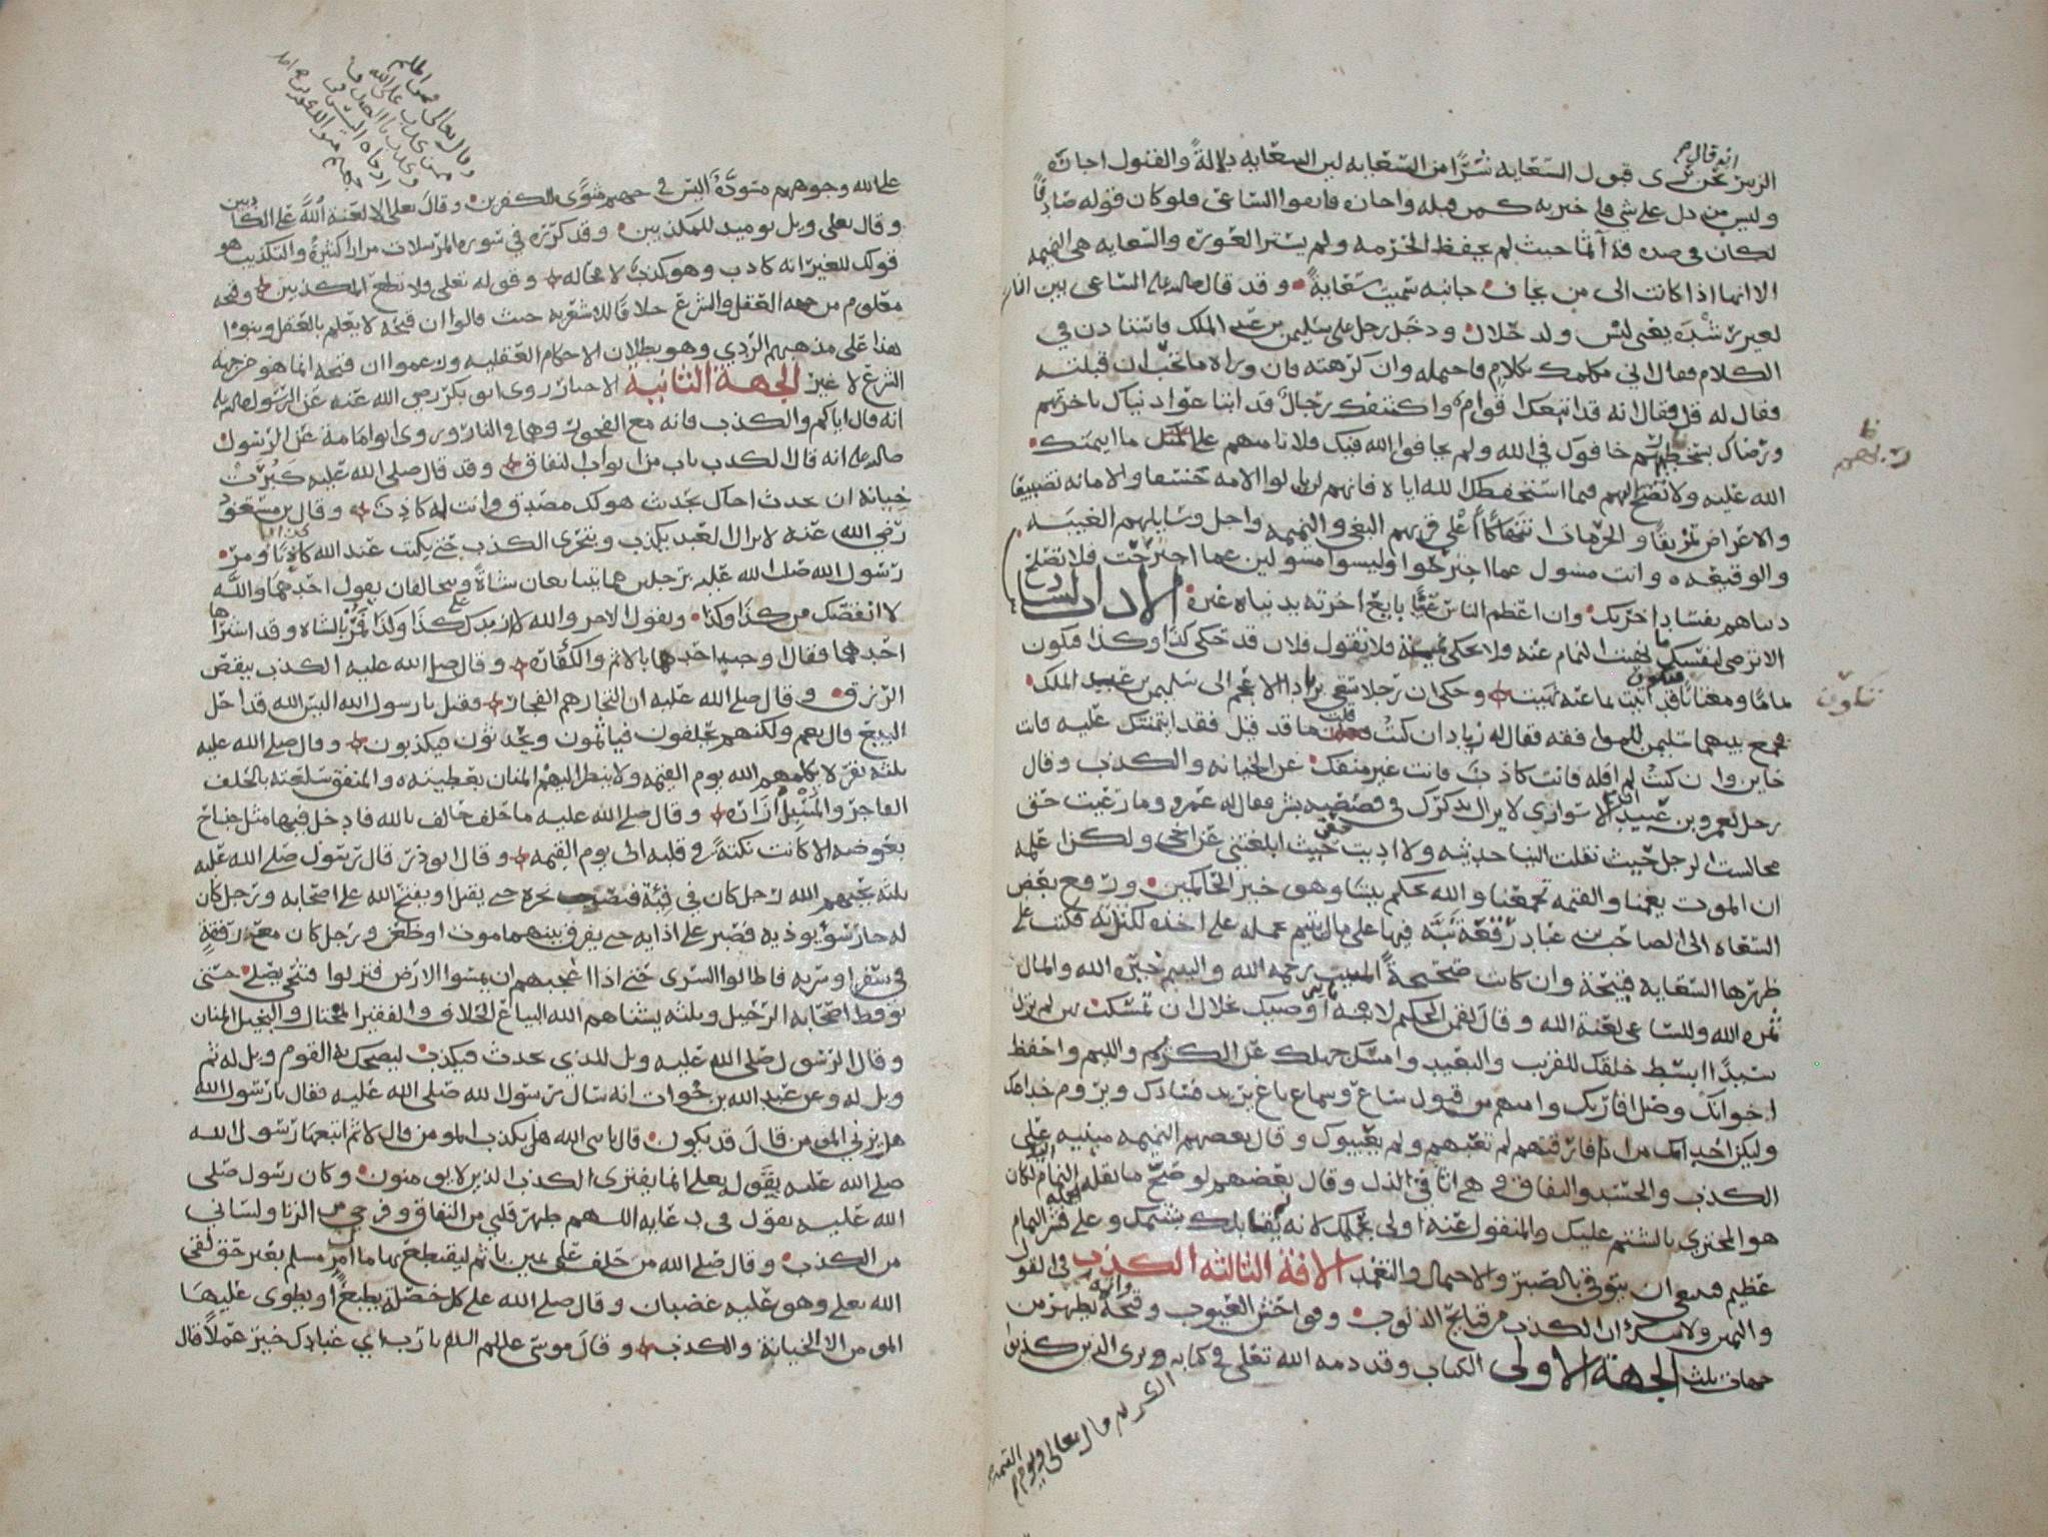 انه قال
الزبير نحن نرى قبول السعايه شرا من السعايه لان السعايه دلالة والقبول اجازه
وليس من دل على شي فاخبر به كمن قبله واجازه فاتقوا الساعي فلو كان قوله صادقا
لكان في صدقه اثما حيث لم يحفظ الحرمه ولم يستر العوره والسعايه هي النميمه
الا انها اذا كانت الى من يخاف جانبه سميت سعاية وقد قال صلى الله عليه الساعي بين الناس
لغير رشده يعني ليس ولد حلال ودخل رجل على سليمن بن عبد الملك فاستاذن في
الكلام فقال اني مكلمك بكلام فاحمله وان كرهته فان وراه ما تحب ان قبلته
فقال له قل فقال انه قد اكتنفك رجال قد ابتاعوا دنياك باخرتهم
ورضاك بسخط ربهم خافوك في الله ولم يخافوا الله فيك فلا تامنهم على ما ايتمنك
الله عليه ولا تصلح اليهم فيما استحفظك الله اياه فانهم لن يالوا الامه خسفا والامانه تضييعا
والاعراض تمزيقا اعلى قربهم البغي والنميمه واجل وسايلهم الغيبه
والوقيعه وانت مسول عما اجترحوا وليسوا مسولين عما اجترحت فلا تصلح
دنياهم بفساد اخرتك وان اعظم الناس غبنا بايع اخرته بدنيا غيره الادب
الا ترضى لنفسك ما نهيت النمام عنه فلا تحكي نميمته فلا تقول فلان قد حكى كذا وكذا فتكون
نماما ومغتابا قد اتيت بما عنه نهيت وحكي ان رجلا سعى بزياد الاعجم الى سليمن بن عبد الملك
فجمع بينهما سليمن للموافقه فقال له زياد ان كنت قلت ما قد قيل فقد ايتمنتك عليه فانت
خاين وان كنت لم اقله فانت كاذب فانت غير منفك عن الخيانه والكذب وقال
رجل لعمرو بن عبيد ان الاسواري لا يزال يذكرك في قصصه بشر فقال له عمرو ما رعيت حق
مجالسة الرجل حيث نقلت الينا حديثه ولا اديت حقي حيث ابلغتني عن اخي ولكن اعلمه
ان الموت يعمنا والقيمه تجمعنا والله يحكم بيننا وهو خير الحاكمين ورفع بعض
السعاه الى الصاحب بن عباد رقعة نبه فيها على مال يتيم يحمله على اخذه لكثرته فكتب على
ظهرها السعايه قبيحة وان كانت صحيحة الميت رحمه الله واليتيم جبره الله والمال
ثمره الله والساعي لعنه الله وقال لقمن الحكيم لابنه يا بني اوصيك بخلال ان تمسكت بهن لم تزل
سيدا ابسط خلقك للقريب والبعيد وامسك جهلك عن الكريم واللييم واحفظ
اخوانك وصل اقاربك وامنهم من قبول ساع وسماع باغ يريد فسادك ويروم خداعك
وليكن اخوانك من اذا فارقتهم لم تعبهم ولم يعيبوك وقال بعضهم النميمه مبنيه على
الكذب والحسد والنفاق وهي اثافي الذل وقال بعضهم لو صح ما نقله النمام اليك لكان
هو المجترى بالشتم عليك والمنقول عنه اولى بحلمك لانه لم يقابلك بشتمك وعلى فشر النمام
عظيم فينبغي ان يتوقى بالصبر والاحتمال والتغمد الافة الثالثه الكذب في القول
واليمين ان الكذب من قبايح الذنوب وفواحش العيوب وقبحه يظهر من
جهات ثلث الجهة الاولى الكتاب وقد ذمه الله تعلى في كتابه ويرى الذين كذبوا
الكريم قال تعالى ويوم القيمة
على الله وجوههم مسودة اليس في جهنم مثوى للكفرين وقال تعلى الا لعنة الله على الكاذبين
وقال تعلى ويل يوميذ للمكذبين وقد كرره في سورة المرسلات مرارا كثيرة والتكذيب هو
قولك للغير انه كاذب وهو كذب لا محاله وقوله تعلى ولا تطع المكذبين وقبحه
معلوم من جهه العقل والشرع خلافا للاشعريه حيث قالوا ان قبحه لا يعلم بالعقل وبنوا
هذا على مذهبهم الردي وهو بطلان الاحكام العقليه وزعموا ان قبحه انما هو من جهه
الشرع لا غير الجهة الثانية الاخبار روى ابو بكر رضي الله عنه عن الرسول صلى الله عليه
انه قال اياكم والكذب فانه مع الفجور وهما في النار وروى ابو امامة عن الرسول
صلى الله عليه انه قال الكذب باب من ابواب النفاق وقد قال صلى الله عليه كبرت
خيانة ان تحدث اخاك بحديث هو لك مصدق وانت له كاذب وقال بن مسعود
رضي الله عنه لا يزال العبد يكذب ويتحرى الكذب حتى يكتب عند الله كاذبا ومر
رسول الله صلى الله عليه برجلين وهما يتبايعان شاة ويتحالفان يقول احدهما والله
لا انقصك من كذا وكذا ويقول الاخر والله لا ازيدك على كذا وكذا فمر بالشاه وقد اشتراها
احدهما فقال اوجب احدهما بالاثم والكفاره وقال صلى الله عليه الكذب ينقص
الرزق وقال صلى الله عليه ان التجار هم الفجار فقيل يا رسول الله اليس الله قد احل
البيع قال نعم ولكنهم يحلفون فياثمون ويحدثون فيكذبون وقال صلى الله عليه
ثلثه نفر لا يكلمهم الله يوم القيمه ولا ينظر اليهم المنان بعطيته والمنفق سلعته بالحلف
الفاجر والمسبل ازاره وقال صلى الله عليه ما حلف حالف بالله فادخل فيها مثل جناح
بعوضه الا كانت نكتة في قلبه الى يوم القيمه وقال ابو ذر قال رسول صلى الله عليه
ثلثه يحبهم الله رجل كان في فئة فنصب نحره حتى يقتل او يفتح الله على اصحابه ورجل كان
له جار سوء يوذيه فصبر على اذايه حتى يفرق بينهما موت او ظعن ورجل كان معه رفقة
في سفر او سريه فاطالوا السرى حتى اذا اعجبهم ان يمسوا الارض فنزلوا فتنحى يصلي حتى
يوقظ اصحابه الرحيل وثلثه يشناهم الله البياع الحلاف والفقير المختال والبخيل المنان
وقال الرسول صلى الله عليه ويل للذي يحدث فيكذب ليضحك به القوم ويل له ثم
ويل له وعن عبد الله بن انه سال رسول الله صلى الله عليه فقال يا رسول الله
هل يزني المومن قال قد يكون قال يا نبي الله هل يكذب المومن قال لا ثم اتبعها رسول الله
صلى الله عليه بقول الله تعلى انما يفتري الكذب الذين لا يومنون وكان رسول صلى
الله عليه يقول في دعايه اللهم طهر قلبي من النفاق وفرجي من الزنا ولساني
من الكذب وقال صلى الله من حلف على يمين باثم ليقتطع بها مال امرء مسلم بغير حق لقي
الله تعلى وهو عليه غضبان وقال صلى الله على كل خصلة يطبع او يطوى عليها
المومن الا الخيانة والكذب وقال موسى عليه السلم يا رب اي عبادك خير عملا قال